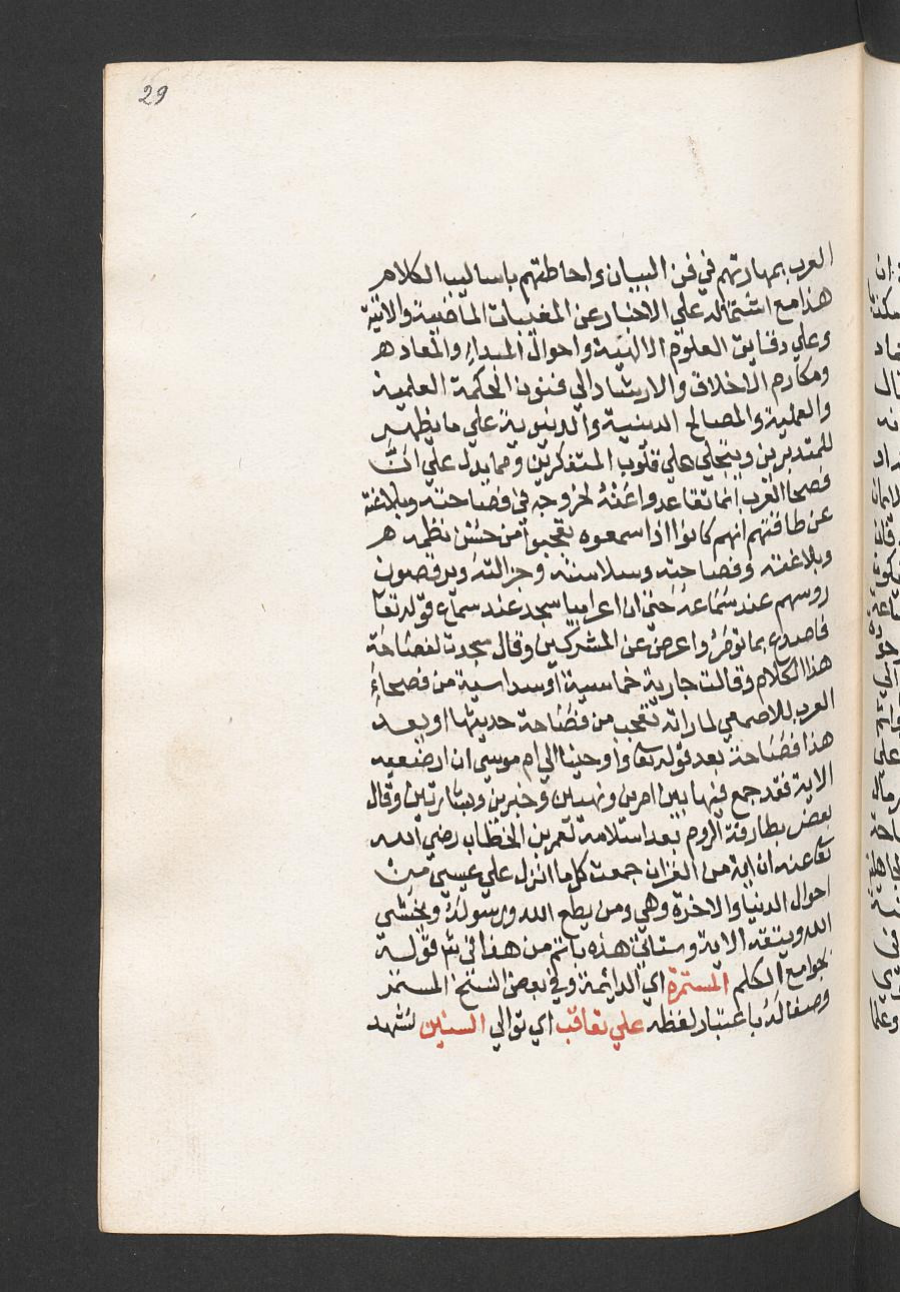 29
العرب بمهارتهم في فن البيان واحاطتهم باساليب الكلام
هذا مع اشتماله علي الاخبار عن المغيبات الماضية والاتية
وعلي دقايق العلوم الالهية واحوال المبداء والمعاد ه
ومكارم الاخلاق والارشاد الي فنون الحكمة العلمية
والعملية والمصالح الدينية والدنيوية علي ما يظهر
للمتدبرين ويتجلي علي قلوب المتفكرين ومما يدل علي انَّ
فصحا العرب انما تقاعدوا عَنْهُ لخروجه في فصاحته وبلاغته
عن طاقتهم انهم كانوا اذا سمعوه تعجبوا من حسن نظمه ه
وبلاغته وفصاحته وسلاسته وجزالته ويرقصون
روسهم عند سماعه حتي ان اعرابيا سجد عند سماع قوله تعا
فاصدع بما تومَرُ واعرض عن المشركين وقال سجدت لفصاحة
هذا الكلام وقالت جارية خماسية او سداسية من فصحاء
العرب للاصمعي لما راته تعجب من فصاحة حديثها اويعد
هذا فصاحة بعد قوله تعا واوحينا الي ام موسي ان ارضعيه
الاية فقد جمع فيها بين امرين ونهيين وخبرين وبشارتين وقال
بعض بطارقة الروم بعد اسلامه لعمر بن الخطاب رضي الله
تعا عنه ان اية من القران جمعت كل ما انزل علي عيسي من
احوال الدنيا والاخرة وهي ومن يطع الله ورسوله ويخشي
الله ويتقه الاية وستاتي هذه باتم من هذا في شر قوله
بجوامع الكلم المستمرة اي الدايمة وفي بعض النسخ المستمر
وصفا له با عتبار لفظه علي تعاقب اي توالي السنين لتشهد